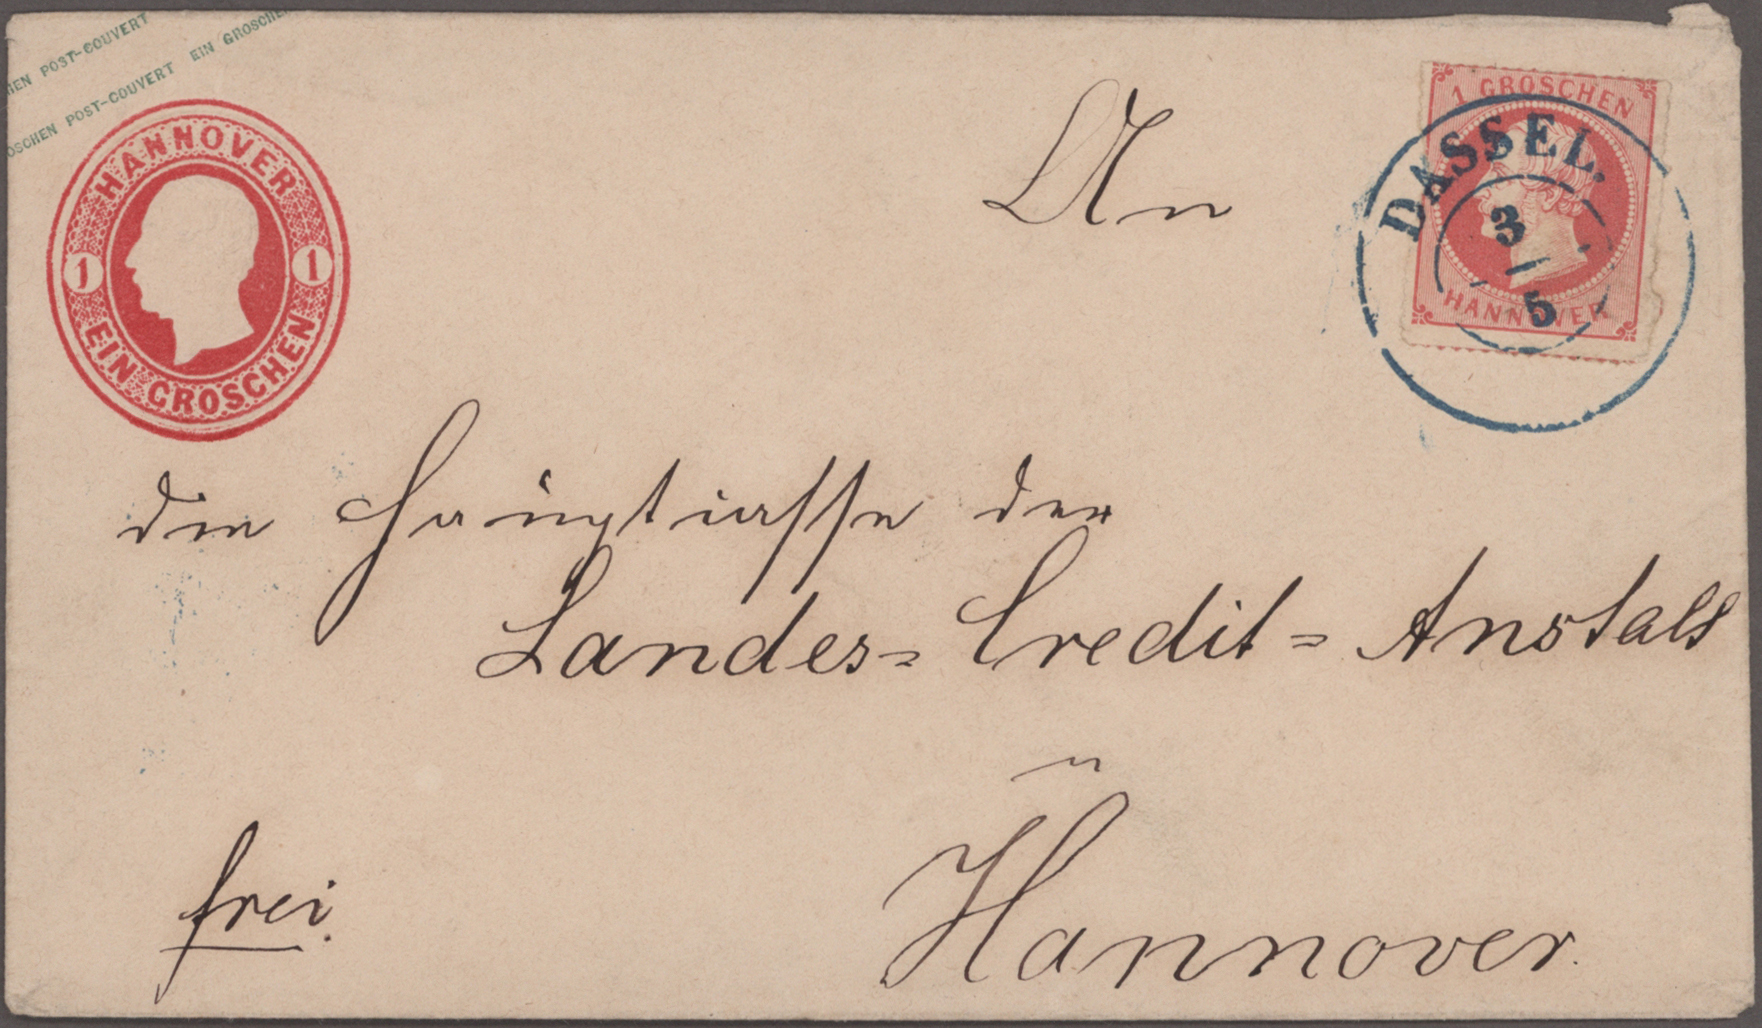 HEN POST-COUVERT
OSCHEN POST-COUVERT EIN GROSCHEN
HANNOVER
1 1
EIN GROSCHEN
1 GROSCHEN
HANNOVER
DASSEL.
3
5
An
die Hauptcasse der
Landes-Credit-Anstalt
in
Hannover.
frei.